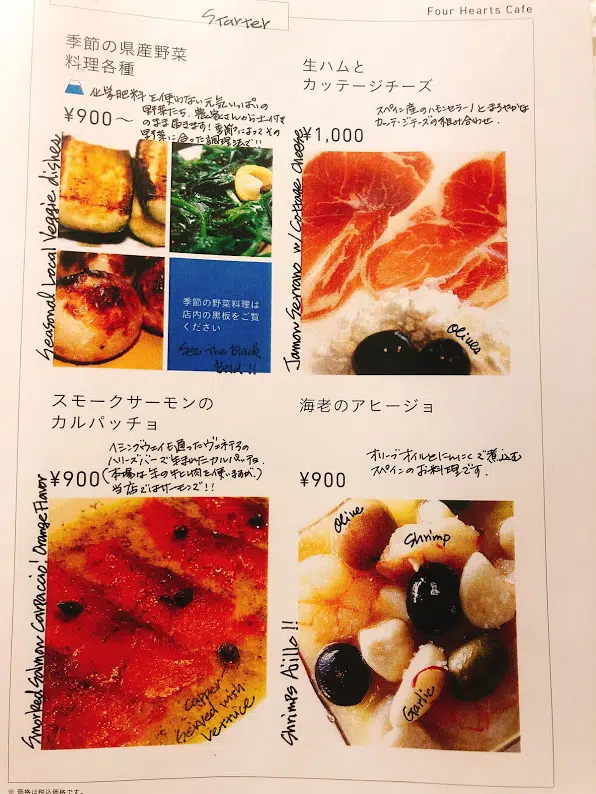 Starter
Four Hearts Cafe
季節の県産野菜
料理各種
化学肥料を使わない元気いっぱいの
野菜たち、農家さんから土付き
のまま届きます！季節によってその
野菜に合った調理法で!!
¥900〜
Seasonal Local Veggie dishes
季節の野菜料理は
店内の黒板をご覧
ください
See The Black
Bold !!
生ハムと
カッテージチーズ
スペイン産のハモンセラーノとまろやかな
カッテージチーズの組み合わせ。
¥1,000
Jamon Serrano w/ Cottage Cheese
Olives
スモークサーモンの
カルパッチョ
ヘミングウェイも通ったヴェネチアの
ハリーズバーで生まれたカルパッチョ。
(本場は生の牛ヒレ肉を使いますが、)
当店ではサーモンで!!
¥900
Smorked Salmon Carpaccio! Orange Flavor
capper
Served with
Lettuce
海老のアヒージョ
オリーブオイルとにんにくで煮込む
スペインのお料理です。
¥900
Shrimps Ajillo !!
Olive
Shrimp
Garlic
※ 価格は税込価格です。